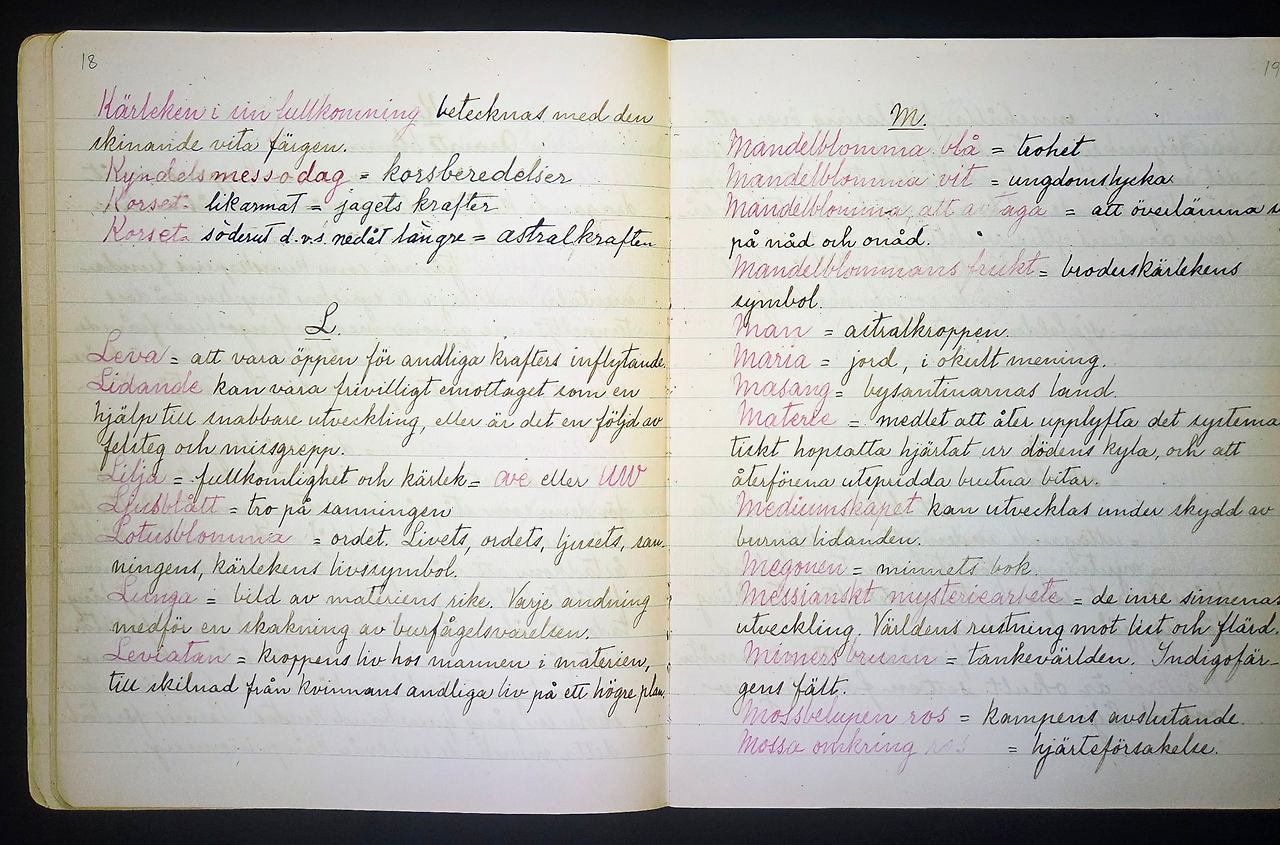 18
Kärleken i sin fullkomning betecknas med den
skinande vita färgen.
Kyndelsmessodag = korsberedelser
Korset. likarmat = jagets krafter
Korset. söderut d.v.s. nedåt längre = astralkraften
L.
Leva = att vara öppen för andliga krafters inflytande.
Lidande kan vara frivilligt emottaget som en
hjälp till snabbare utveckling, eller är det en följd av
felsteg och missgrepp.
Lilja = fullkomlighet och kärlek = ave eller UW
Ljusblått = tro på sanningen
Lotusblomma = ordet. Livets, ordets, ljusets, san-
ningens, kärlekens livssymbol.
Lunga = bild av materiens rike. Varje andning
medför en skakning av burfågelsvarelsen.
Leviatan = kroppens liv hos mannen i materien,
till skilnad från kvinnans andliga liv på ett högre plan.
19
M.
Mandelblomma blå = trohet
Mandelblomma vit = ungdomslycka
Mandelblomma, att avtaga = att överlämna
på nåd och onåd.
Mandelblommans frukt = broderskärlekens
symbol.
Man = astralkroppen.
Maria = jord, i okult mening.
Masang = bysantinarnas land.
Materie = medlet att åter upplyfta det systema
tiskt hopsatta hjärtat ur dödens kyla, och att
återförena utspridda brutna bitar.
Mediumskapet kan utvecklas under skydd av
burna lidanden.
Megonen = minnets bok.
Messianskt mysteriearbete = de inre sinnenas
utveckling. Världens rustning mot list och flärd.
Mimers brunn = tankevärlden. Indigofär-
gens fält.
Mossbelupen ros = kampens avslutande.
Mossa omkring ros = hjärteförsakelse.